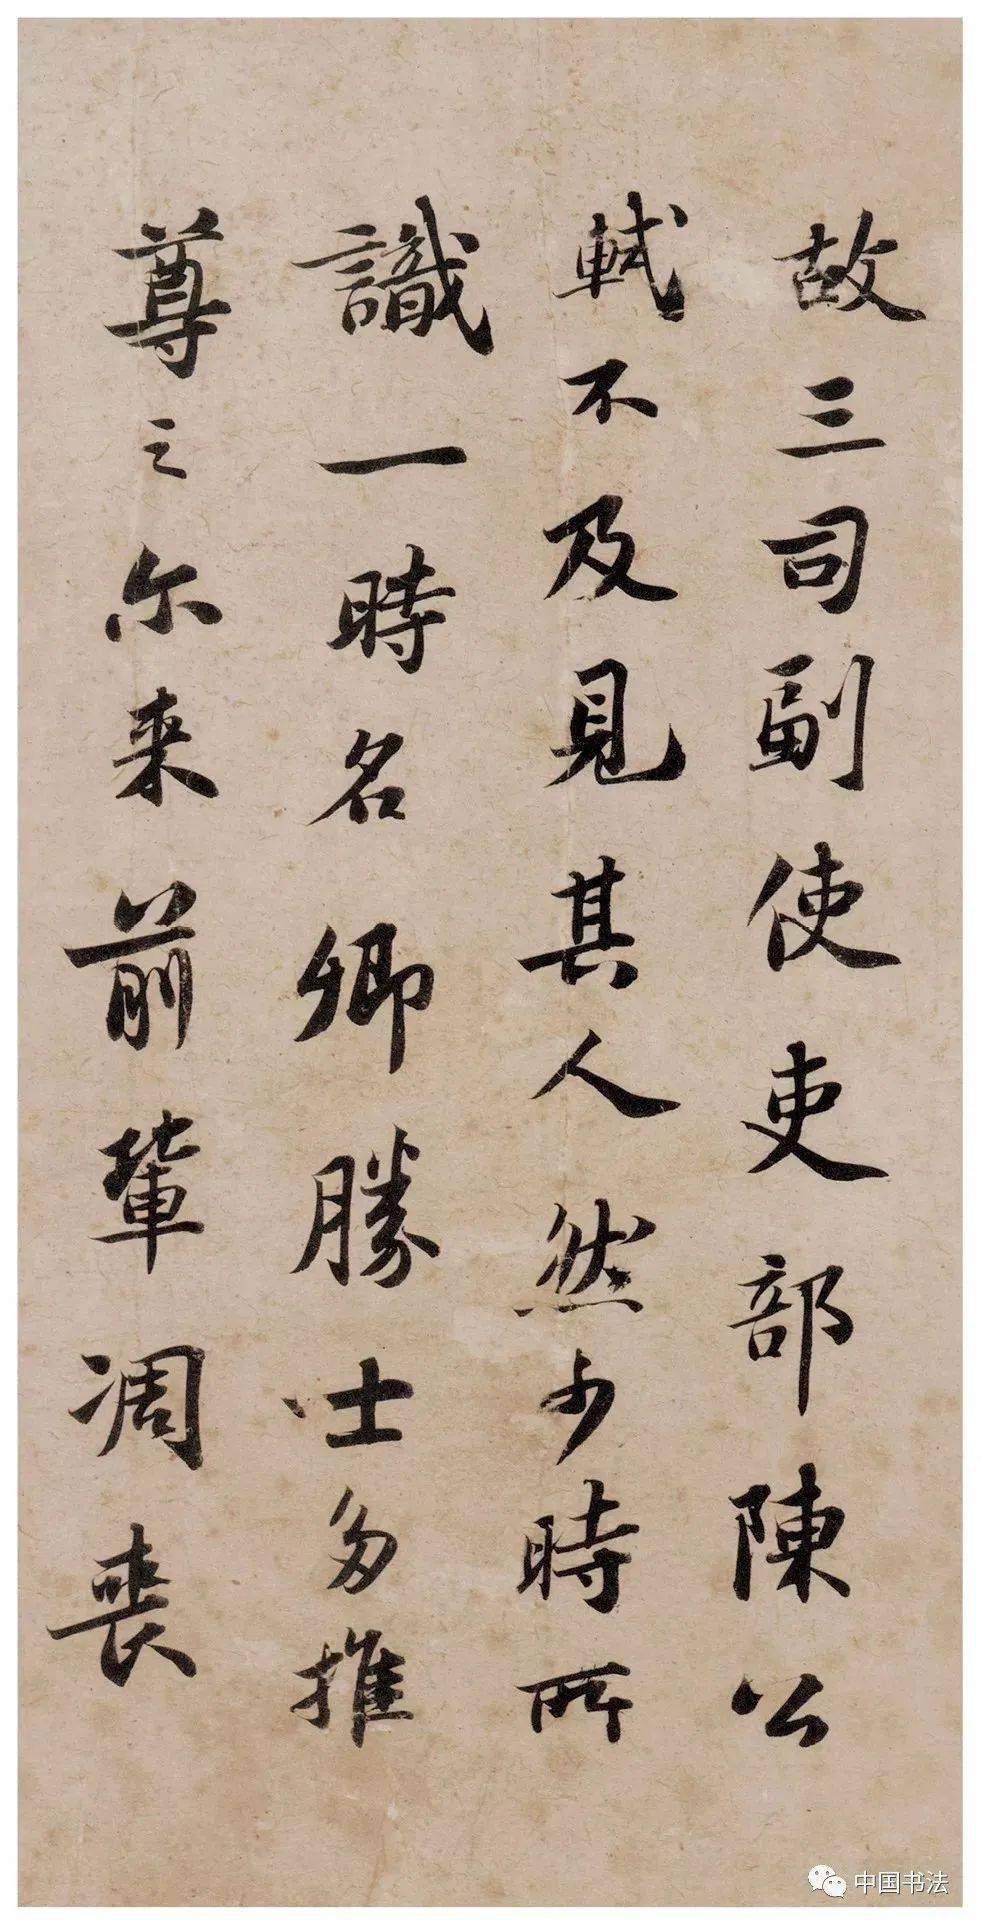 故三司副使吏部陳公
軾不及見其人然少時所
識一時名卿勝士多推
尊之尔来前輩凋喪
中国书法